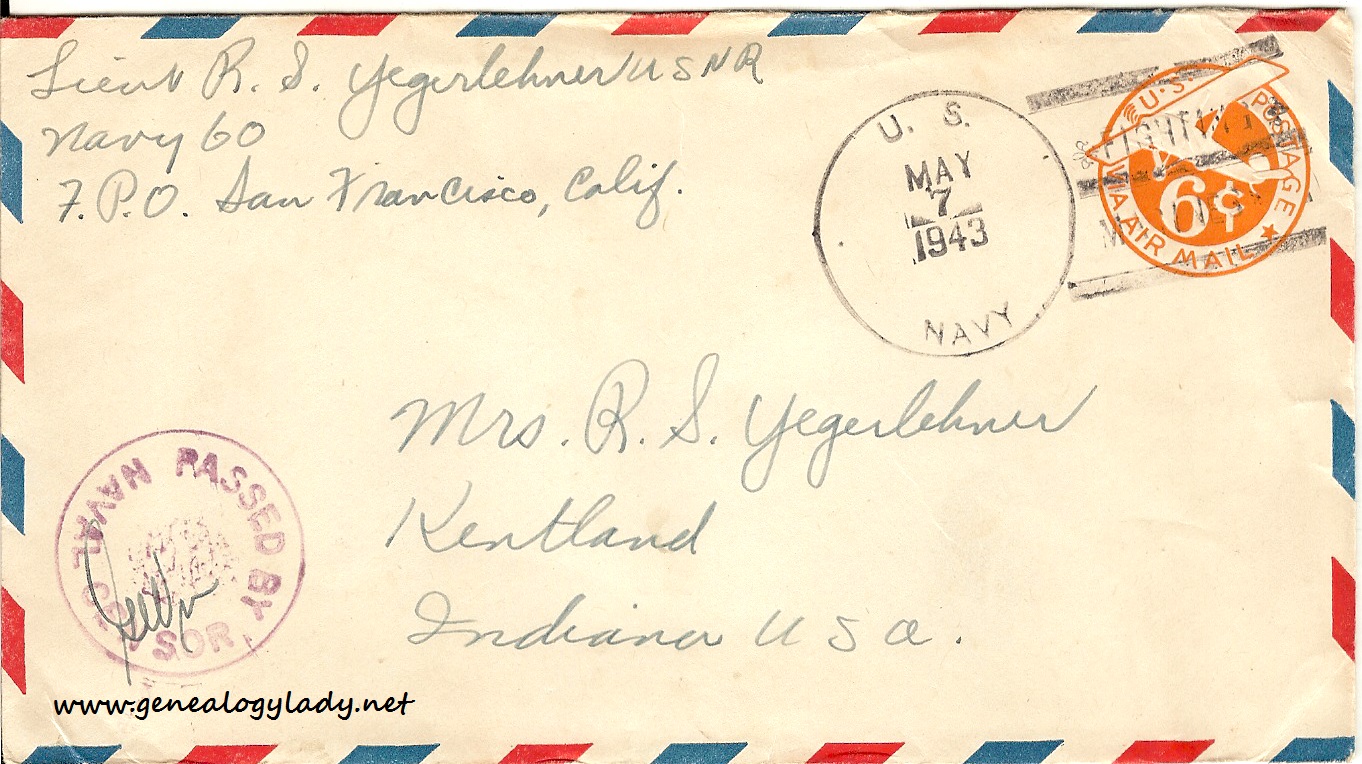 Lieut R. S. Yegerlehner USNR
Navy 60
F.P.O. San Francisco, Calif.
U. S.
MAY
7
1943
NAVY
U.S. POSTAGE
6¢
VIA AIR MAIL
Mrs. R. S. Yegerlehner
Kentland
Indiana U S A.
PASSED BY
NAVAL CENSOR
www.genealogylady.net